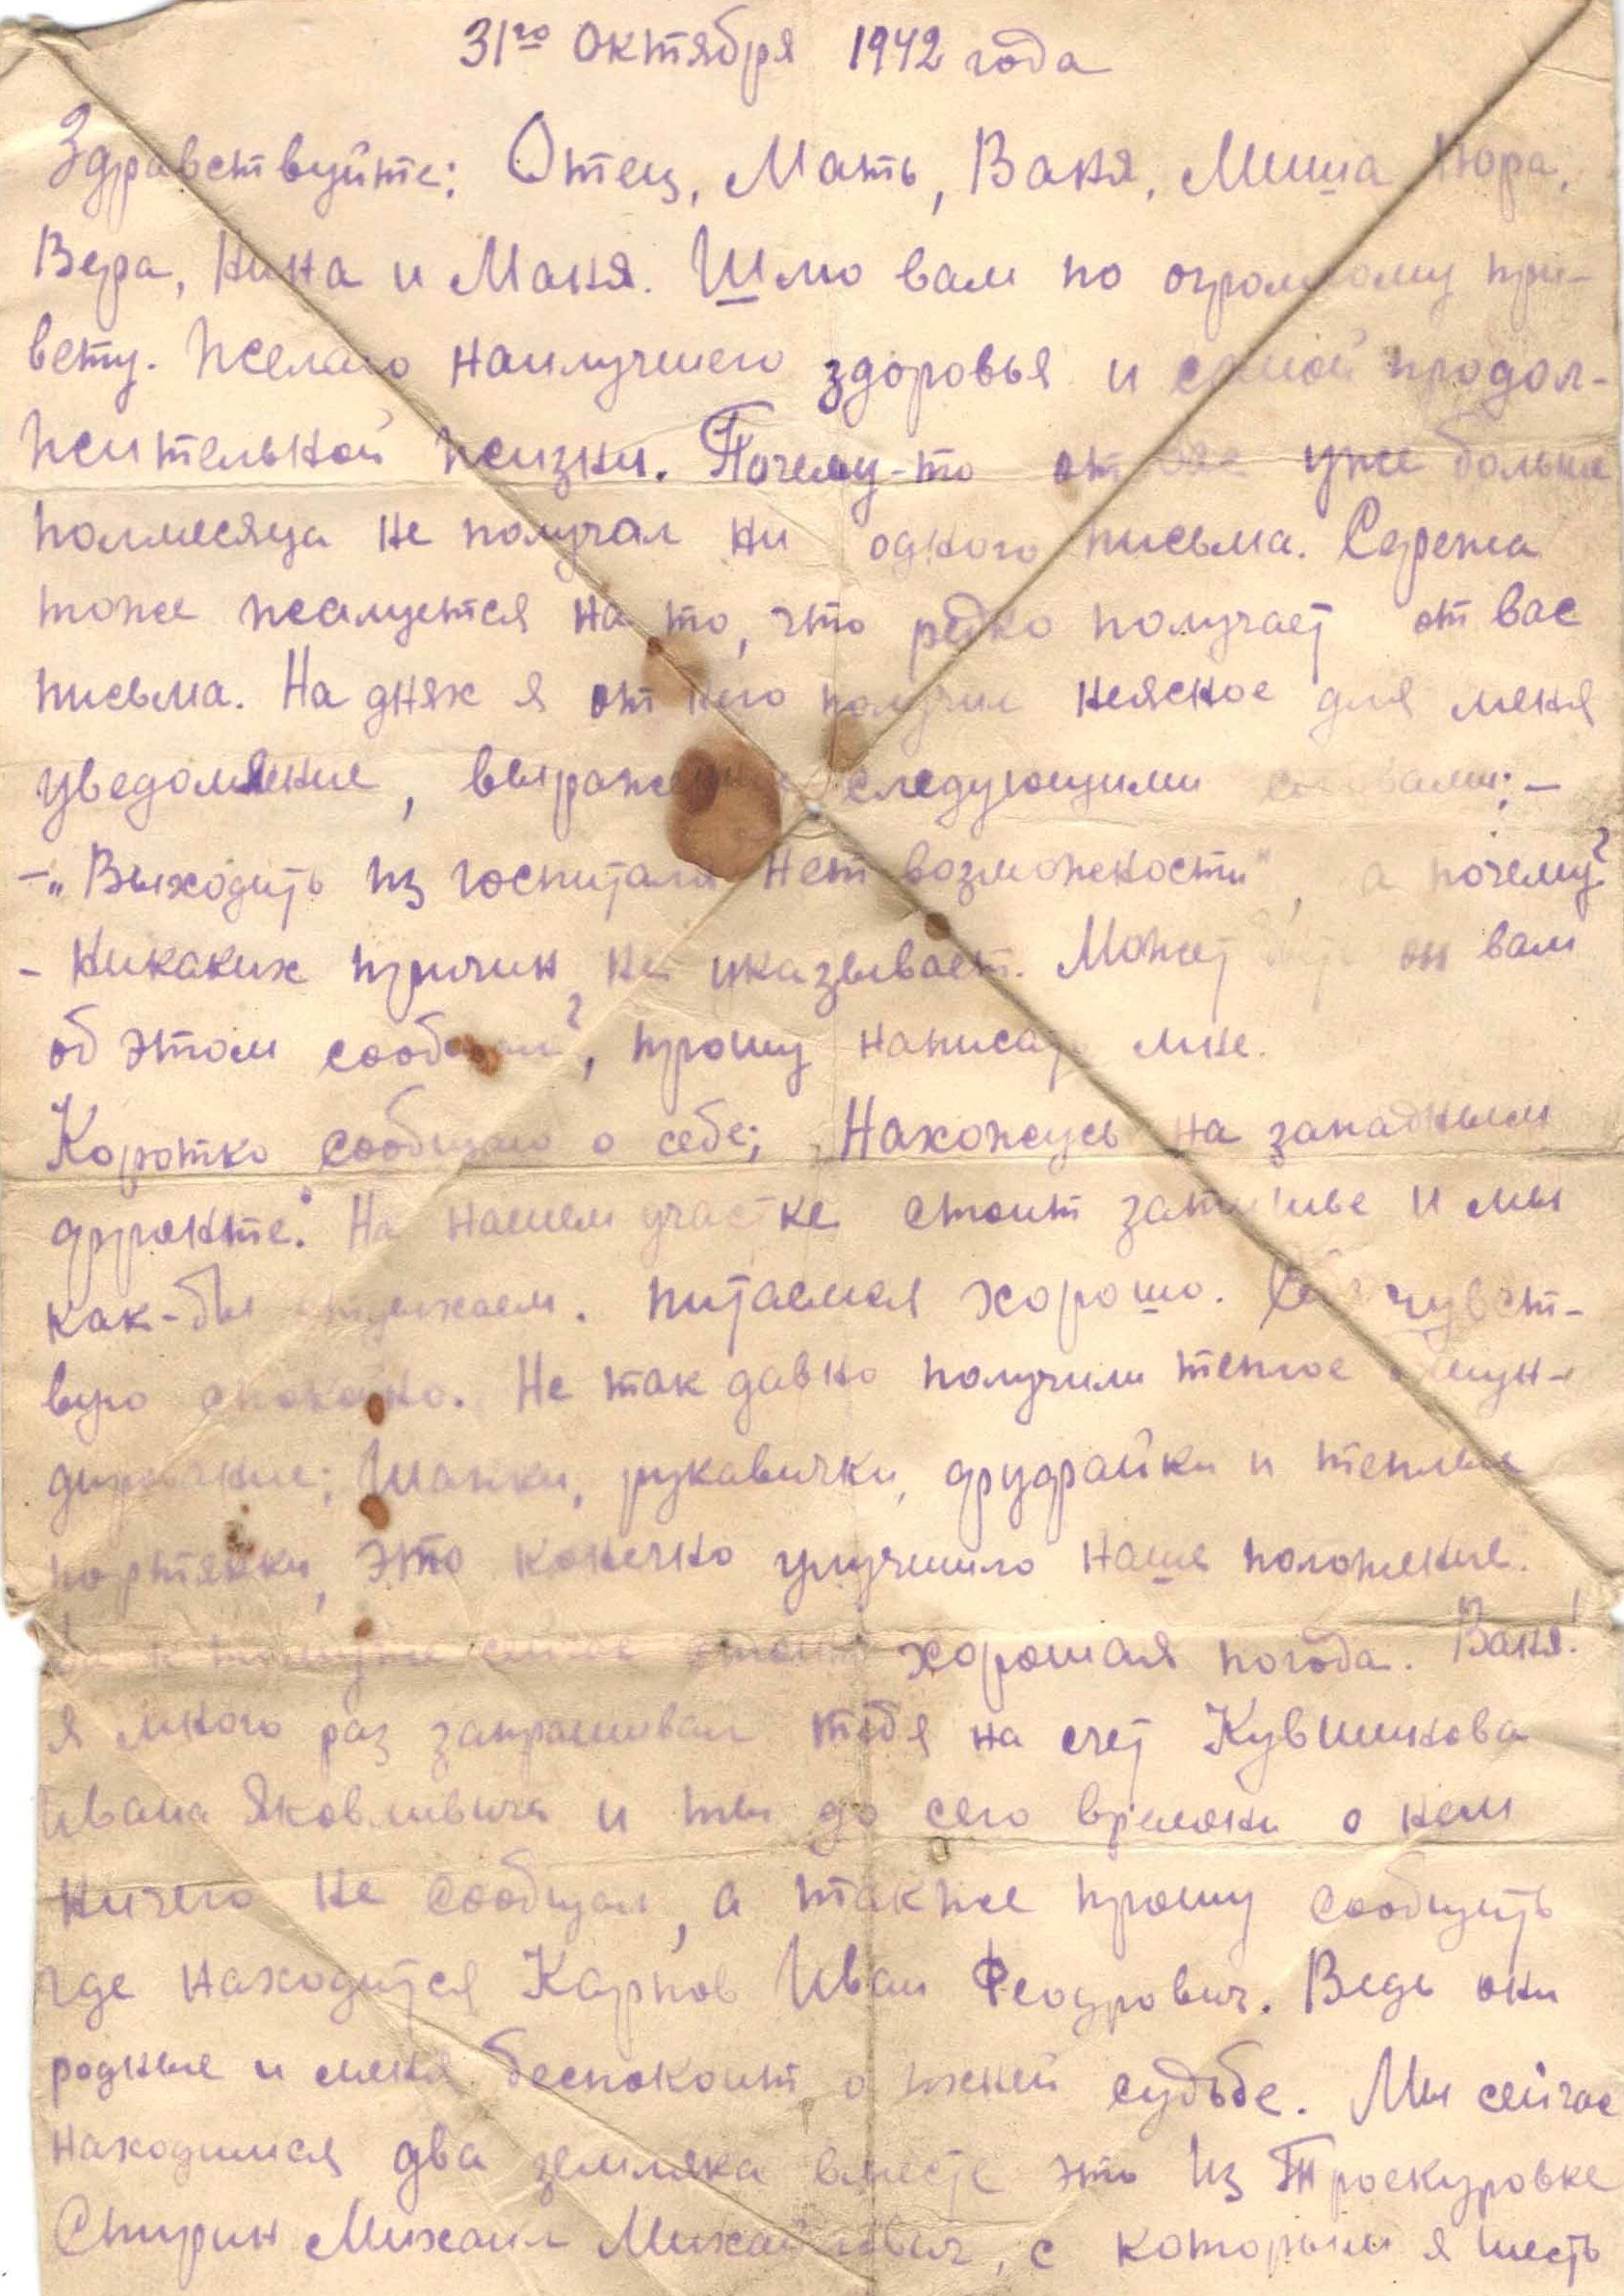 31го Октября 1942 года
Здравствуйте: Отец, Мать, Ваня, Миша Нюра,
Вера, Нина и Маня. Шлю вам по огромному при-
вету. Желаю наилучшего здоровья и самой продол-
жительной жизни. Почему-то от вас уже больше
полмесяца не получал ни одного письма. Сережа
тоже жалуется на то, что редко получает от вас
письма. На днях я от него получил неясное для меня
уведомление, выражен следующими словами: —
— „Выходить из госпиталя нет возможности", а почему?
- Никаких причин не указывает. Может быть он вам
об этом сообщил?, прошу написать мне.
Коротко сообщаю о себе; Нахожусь на западным
фронте. На нашем участке стоит затишье и мы
как-бы отдыхаем. Питаемся хорошо. Себя чувст-
вую спокойно. Не так давно получили теплое обмун-
дирование; Шапки, рукавички, фуфайки и теплые
портянки, это конечно улучшило наше положение.
хорошая погода. Ваня!
Я много раз запрашивал тебя на счет Кувшинова
Ивана Яковлевича и ты до сего времени о нем
ничего не сообщал, а также прошу сообщить
где находится Карпов Иван Феодрович. Ведь они
родные и меня беспокоит о судьбе. Мы сейчас
находимся два земляка вместе это Из Троекуровке
Михаил Михайлович, с которым я шесть